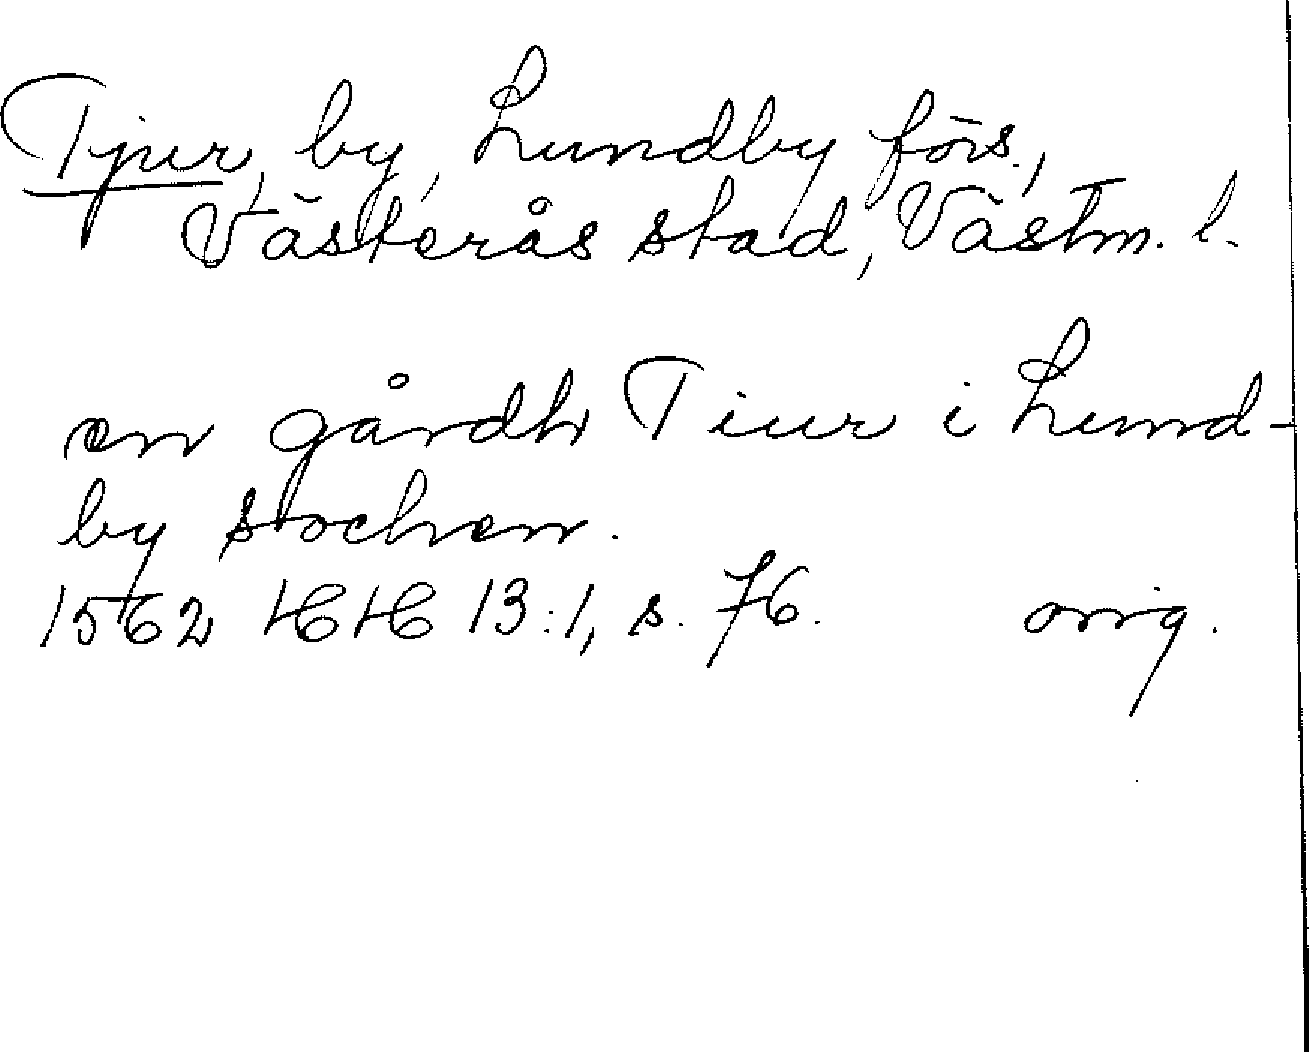 Tjur, by, Lundby förs.,
Västerås stad, Västm. l.
en gårdh Tiur i Lund-
by sochen.
1562 HH 13:1, s. 76. orig.